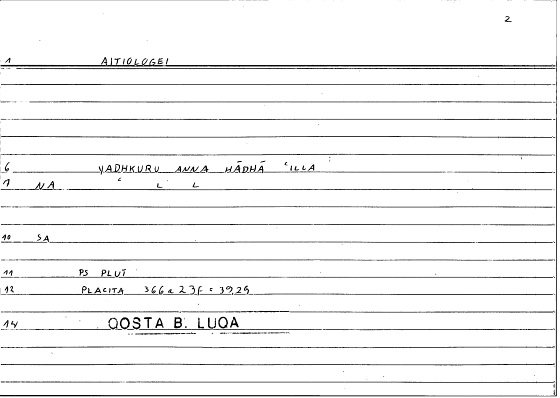 2
1 AITIOLOGEI
6 YADHKURU ANNA HĀDHĀ ʿILLA
1 NA ʿ L L
10 SA
11 PS PLUT
12 PLACITA 366 a 23f = 39,29
14 QOSTA B. LUQA